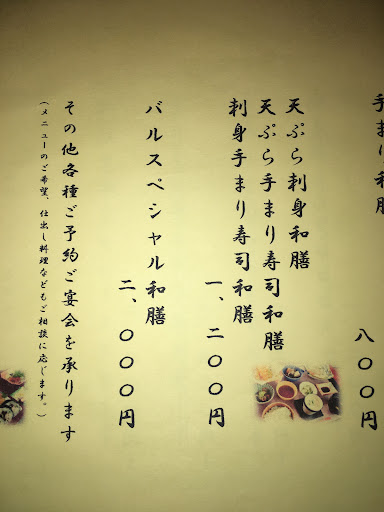 手まり和膳
八〇〇円
天ぷら刺身和膳
天ぷら手まり寿司和膳
刺身手まり寿司和膳
一、二〇〇円
バルスペシャル和膳
二、〇〇〇円
その他各種ご予約ご宴会を承ります
(メニューのご希望、仕出し料理などもご相談に応じます。)